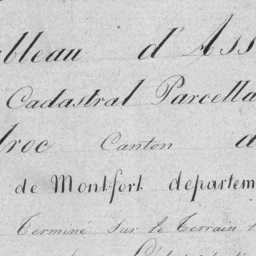 bleau d'Ass
Cadastral Parcella
roc Canton d
de Montfort departem
Terminé sur le Terrain l